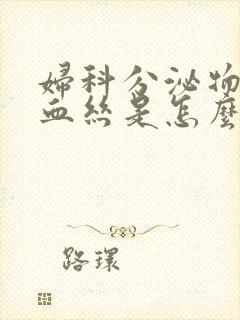 婦科分泌物
血絲是怎麼
路環